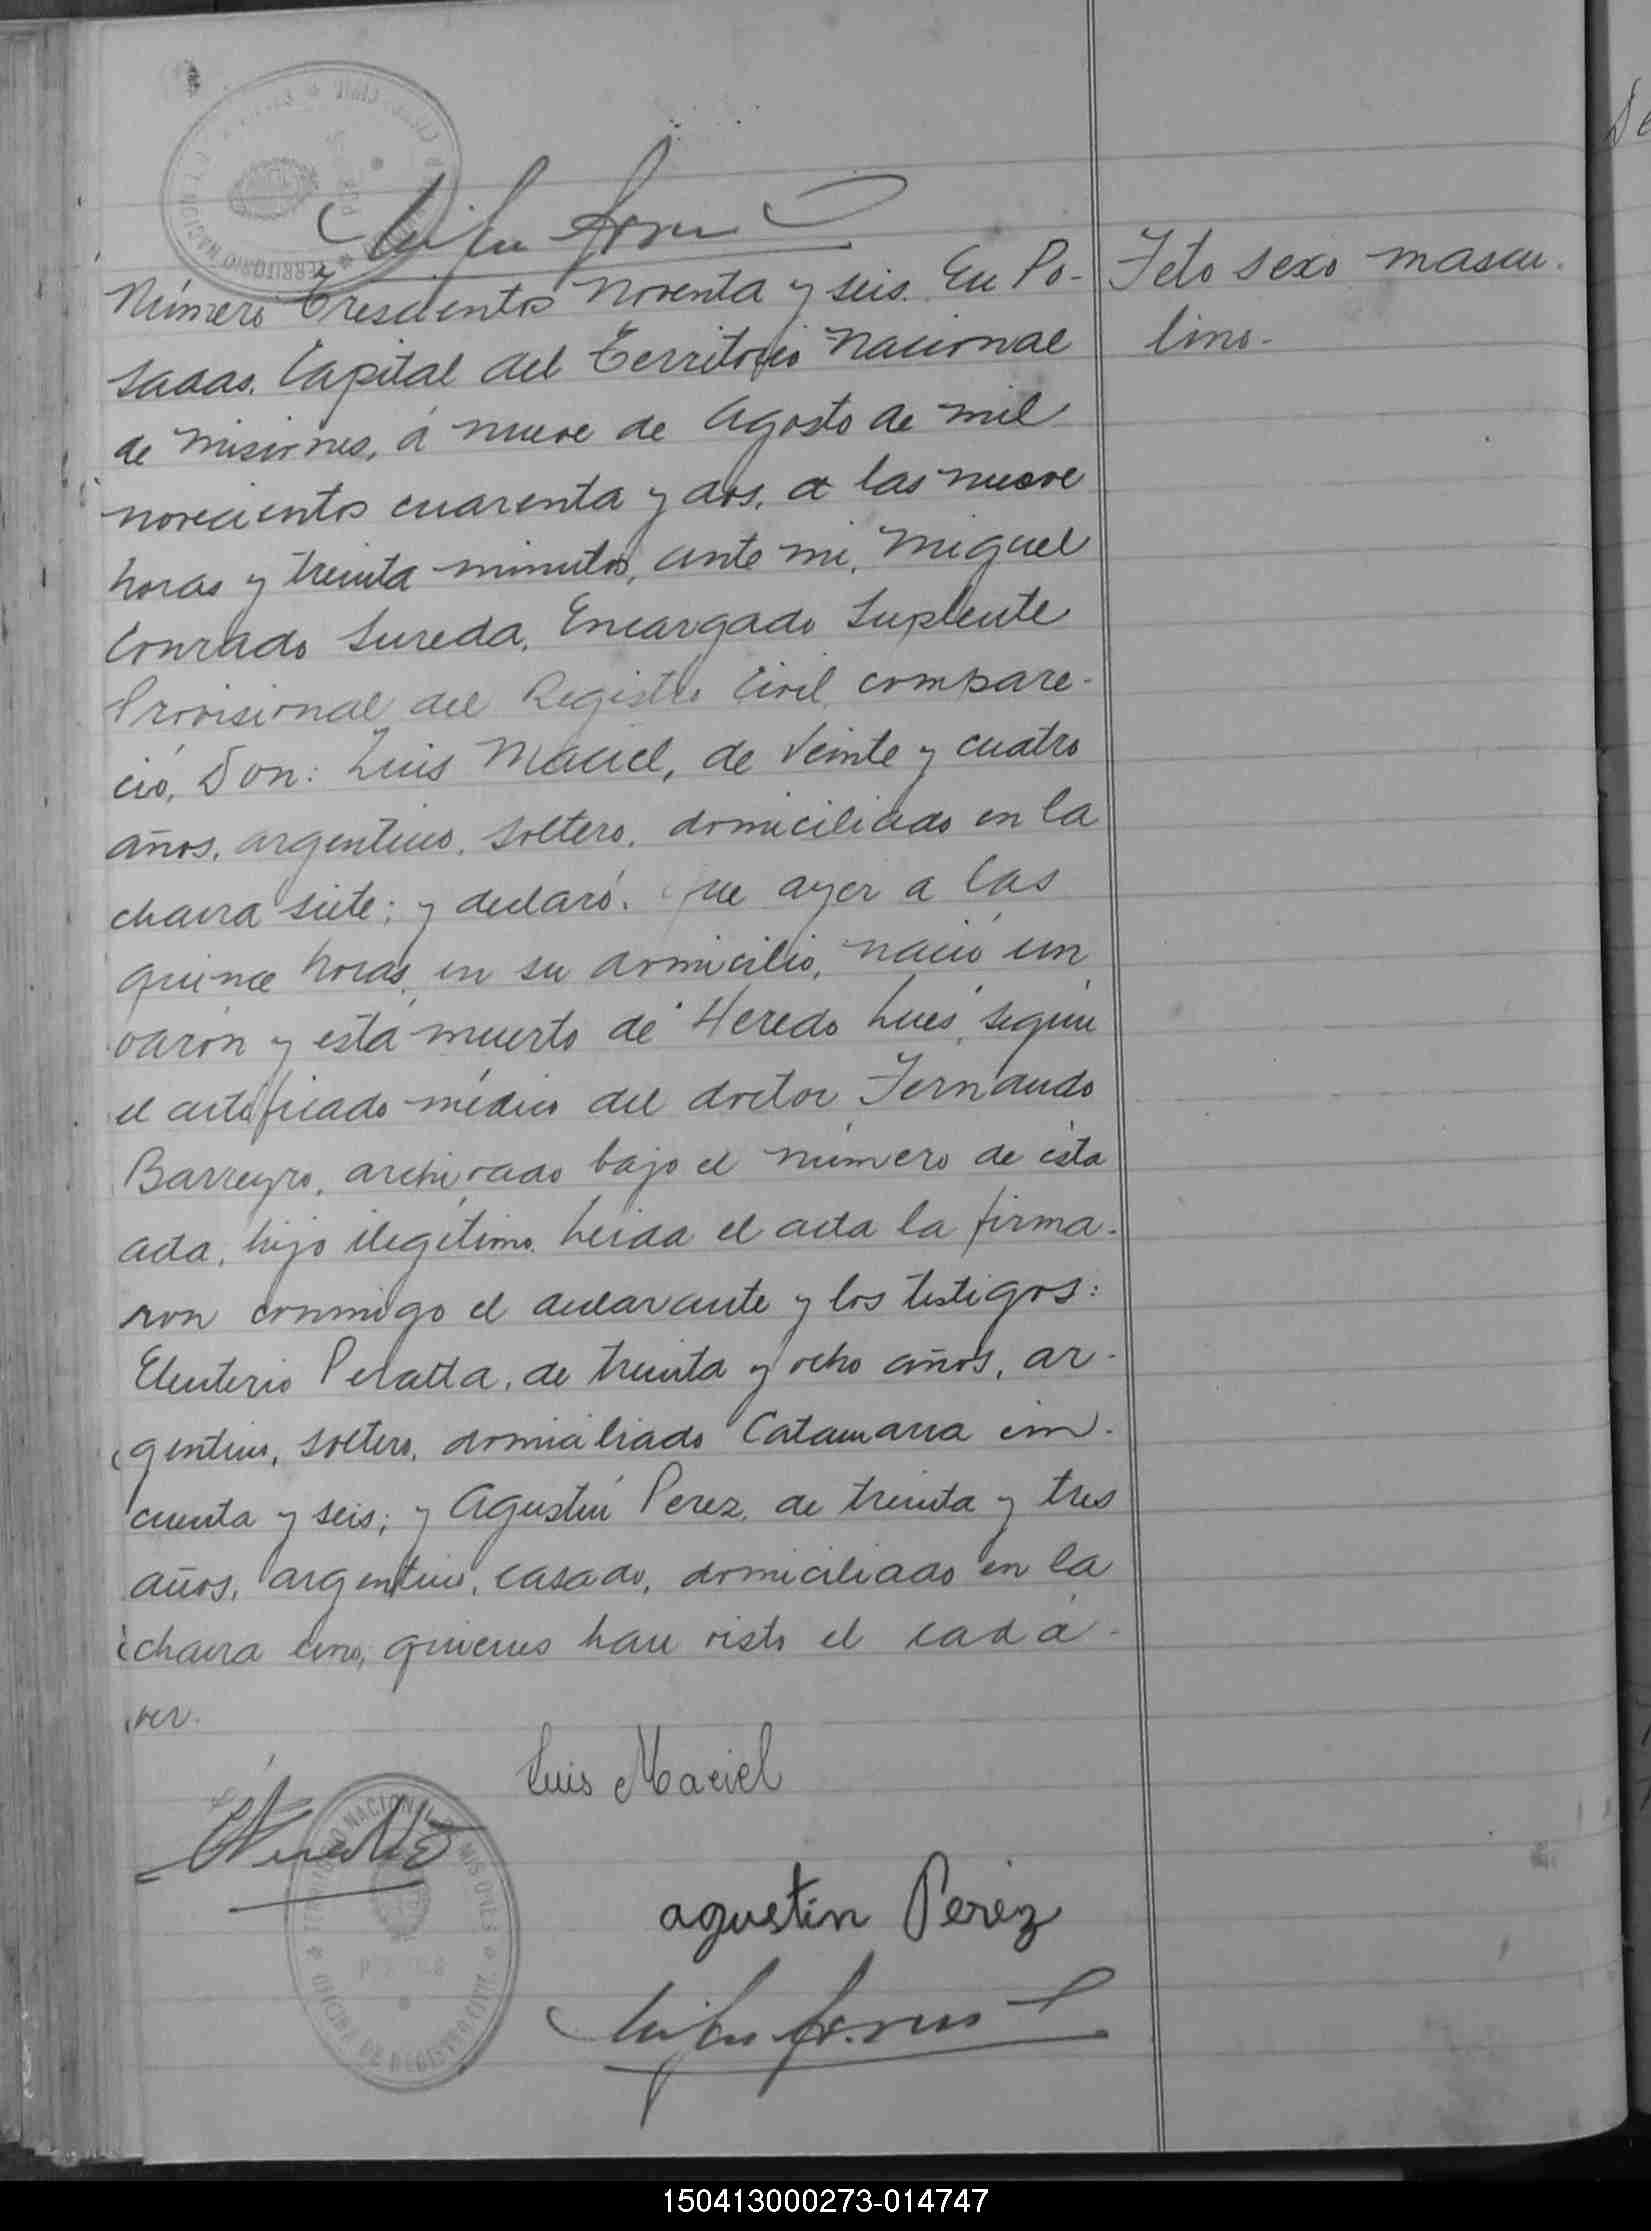 Número Trescientos noventa y seis. En Po-
sadas. Capital del Territorio Nacional
de Misiones, á nueve de Agosto de mil
novecientos cuarenta y dos, a las nueve
horas y treinta minutos, ante mi, Miguel
Conrado Sureda, Encargado Suplente
Provisional del Registro Civil, compare-
ció, Don: Luis Maciel, de veinte y cuatro
años, argentino, soltero, domiciliado en la
chacra siete; y declaró: que ayer a las
quince horas, en su domicilio, nació un
varón y está muerto de Heredo Lues, según
el certificado médico del doctor Fernando
Barreyro, archivado bajo el número de ésta
acta, hijo ilegítimo. Leida el acta la firma-
ron conmigo el declarante y los testigos:
Eleuterio Peralta, de treinta y ocho años, ar-
gentino, soltero, domiciliado Catamarca cin-
cuenta y seis; y Agustín Perez, de treinta y tres
años, argentino, casado, domiciliado en la
chacra uno, quienes han visto el cadá-
ver.
Feto sexo mascu-
lino.
Luis Maciel
TERRITORIO NACIONAL MISIONES
OFICINA DE REGISTRO CIVIL
agustin Perez
150413000273-014747